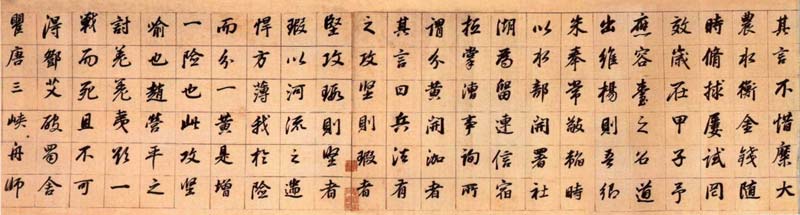 其言不惜糜大
農水衡金錢隨
時脩捄屢試罔
效歲在甲子予
應容臺之召道
出維楊則吾鄉
朱奉常敬韜時
以水部開署社
湖為留連信宿
抵掌漕事詢所
謂分黃開泇者
其言曰兵法有
之攻堅則瑕者
堅攻瑕則堅者
瑕以河流之湍
悍方薄我於險
而分一黃是增
一險也此攻堅
喻也趙營平之
討羌羌夷欲一
戰而死且不可
得鄧艾破蜀舍
瞿唐三峽舟師